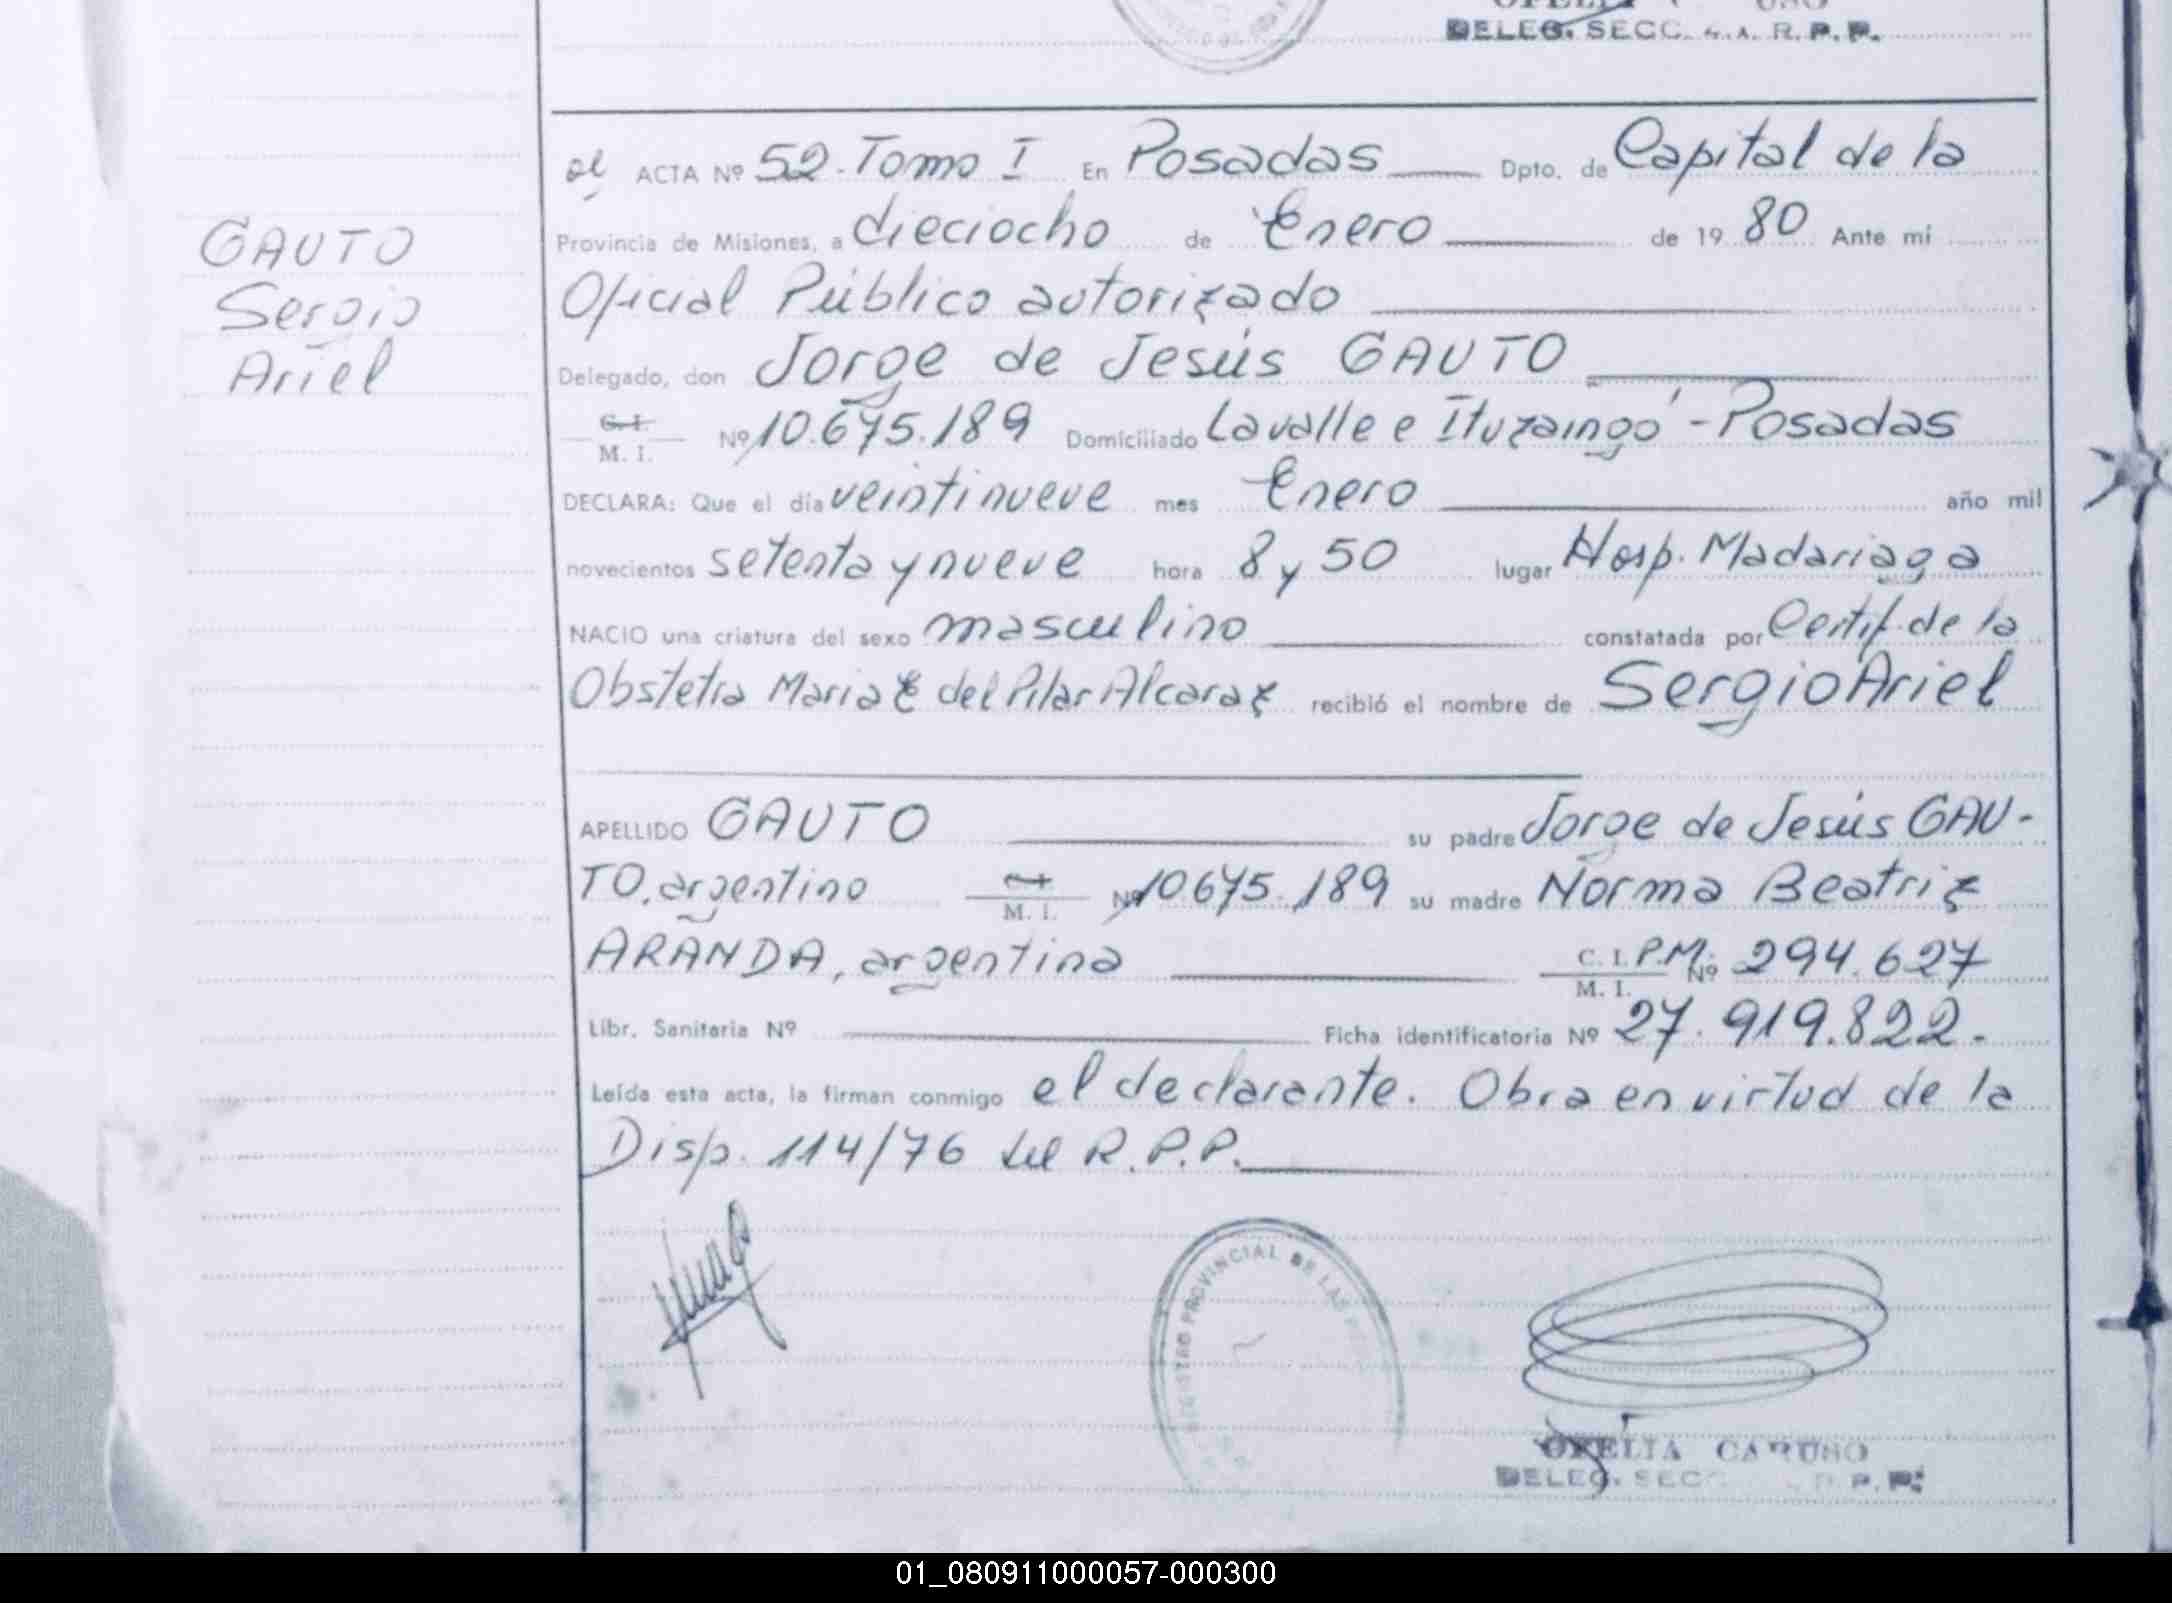 DELEG. SECC. 4.A. R.P.P.
ACTA Nº 52. Tomo I En Posadas Dpto. de Capital de la
Provincia de Misiones, a dieciocho de Enero de 19 80 Ante mí
Oficial Público autorizado
Delegado, don Jorge de Jesús GAUTO
C. I.
M. I. Nº 10.675.189 Domiciliado Lavalle e Ituzaingó - Posadas
DECLARA: Que el día veintinueve mes Enero año mil
novecientos setenta y nueve hora 8 y 50 lugar Hosp. Madariaga
NACIO una criatura del sexo masculino constatada por Certif. de la
Obstetra Maria E del Pilar Alcaraz recibió el nombre de Sergio Ariel
APELLIDO GAUTO su padre Jorge de Jesús GAU-
TO, argentino M. I. Nº 10.675.189 su madre Norma Beatriz
ARANDA, argentina C. I. P.M. Nº 294.627
M. I.
Libr. Sanitaria Nº Ficha identificatoria Nº 27.919.822.
Leída esta acta, la firman conmigo el declarante. Obra en virtud de la
Disp. 114/76 del R.P.P.
GAUTO
Sergio
Ariel
REGISTRO PROVINCIAL DE LAS
OFELIA CARUSO
DELEG. SECC. R.P.P.
01_080911000057-000300